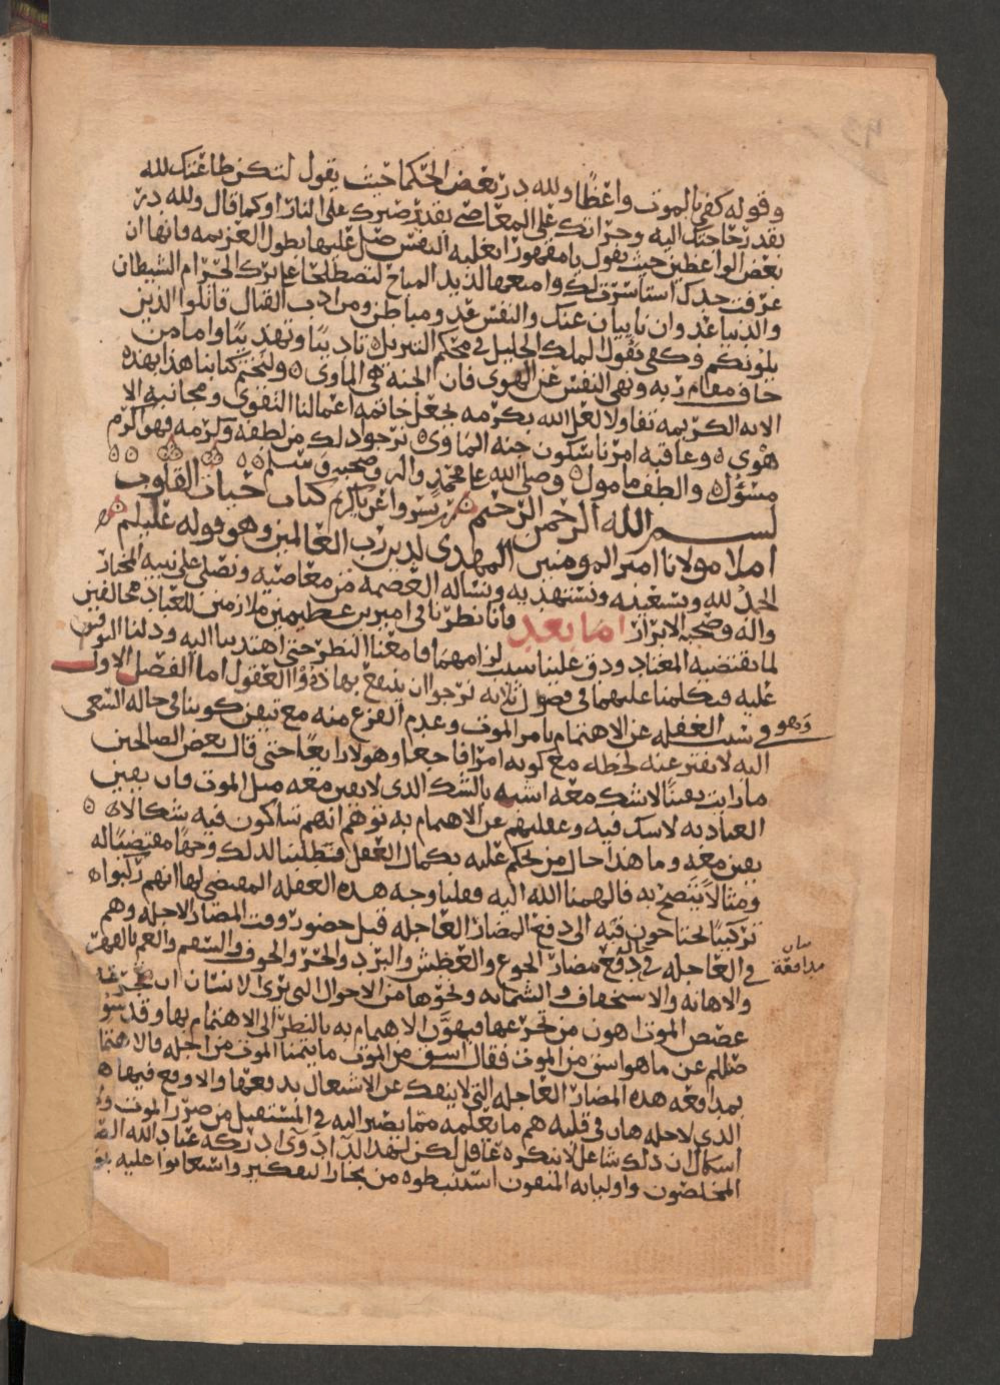 وقوله كفى بالموت واعظا ولله در بعض الحكما حيث يقول لتكن طاعتك لله
بقدر حاجتك اليه وجراتك على المعاصي بقدر صبرك على النار او كما قال ولله در
بعض الواعظين حيث يقول يا مقهورا بغلبه النفس صل عليها بطول العزيمه فانها ان
عرفت جدك استاسرت لك وامنعها لذيذ المباح لتصطلحا على ترك الحرام الشيطان
والدنيا عدوان باينان عنك والنفس عدو مباطن ومن ادب القتال قاتلوا الذين
يلونكم وكفى بقول الملك الجليل في محكم التنزيل تاديبا وتهديبا واما من
خاف مقام ربه ونهى النفس عن الهوى فان الجنه هي الماوى ولنختم كتابنا هذا بهذه
الايه الكريمه تفاولا لعل الله بكرمه يجعل خاتمه اعمالنا التقوى ومجانبه الا
هوى وعاقبه امرنا سكون جنه الماوى نرجوا ذلك من لطفه وكرمه فهو اكرم
مسؤل والطف مامول وصلى الله على محمد واله وصحبه وسلم
بسم الله الرحمن الرحيم رب يسر واعن يا كريم كتاب حياة القلوب
املا مولانا امير المومنين المهدي لدين رب العالمين وهو قوله عليلم
الحمد لله ونستعينه ونستهديه ونساله العصمه من معاصيه ونصلي على نبيه المختار
واله وصحبه الابرار اما بعد فانا نظرنا في امرين عظيمين ملازمين للعباد مخالفين
لما تقتضيه المعتاد ودق علينا سبب لزامهما فامعنا النظر حتى اهتدينا اليه ودلنا التوفيق
عليه فتكلمنا عليهما في فصول ثلاثه نرجوا ان ينتفع بها ذووا العقول اما الفصل الاول
وهو في سبب الغفله عن الاهتمام بامر الموت وعدم الفزع منه مع تيقن كوننا في حاله السعي
اليه لا يفتر عنه لحظه مع كونه امرا فاجعا وهولا رايعا حتى قال بعض الصالحين
ما رايت يقينا لا شك معه اشبه بالشك الذي لا يقين معه مثل الموت فان يقين
العباد به لا شك فيه وغفلتهم عن الاهتمام به توهم انهم شاكون فيه شكا لا
يقين معه وما هذا حال من يحكم عليه بكمال العقل فتطلبنا لذلك وجها مقتضيا له
ومثالا يتضح به فالهمنا الله اليه فقلنا وجه هذه الغفله المفضي لها انهم ركبوا
تركيبا يحتاجون فيه الى دفع المضار العاجله قبل حضور وقت المضار الاجله وهم
في العاجله في دفع مضار الجوع والعطش والبرد والحر والخوف والسقم والغم بالقهر
بيان
مدافعة
والاهانه والاستخفاف والشماته ونحوها من الاحوال التي يرى الانسان ان تجرع
غصص الموت اهون من تجرعها فيهون الاهتمام به بالنظر الى الاهتمام بها وقد سئل
صلعم عن ما هو اشق من الموت فقال اشق من الموت ما يتمنا الموت من اجله فالاهتما
بمدافعه هذه المضار العاجله التي لا ينفك عن الاشتغال بدفعها والا وقع فيها
الذي لاجله هان في قلبه هم ما يعلمه مما يصير اليه في المستقبل من ضرر الموت
ان ذلك شاغل لا ينكره عاقل لكن لهذا الدا دوى ادركه عباد الله
المخلصون واوليائه المتقون استنبطوه من بحار التفكير واستعانوا عليه